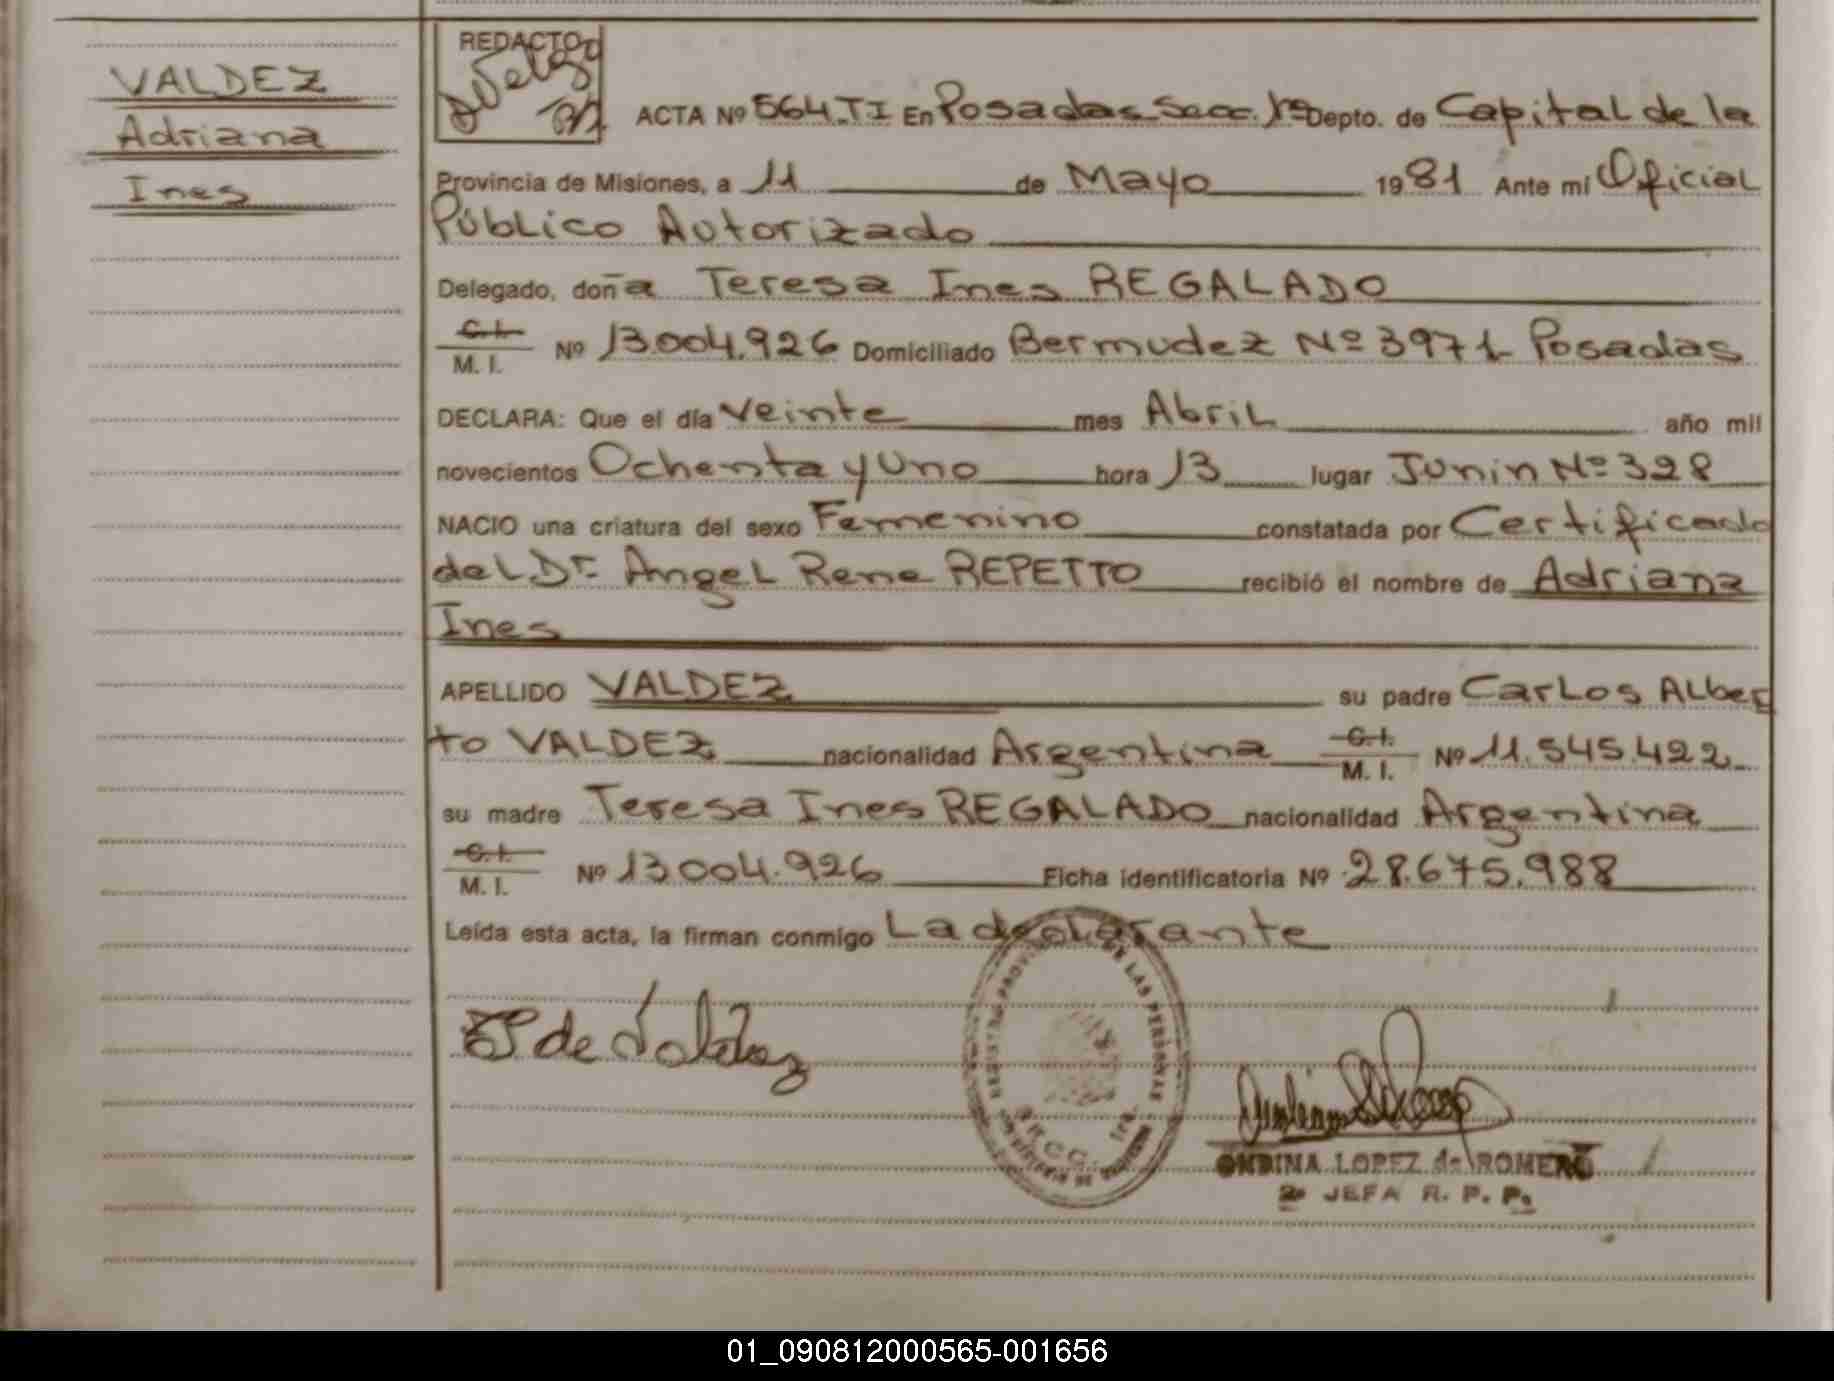 VALDEZ
Adriana
Ines
REDACTO
ACTA Nº 564.TI En Posadas Secc. 1ª Depto. de Capital de la
Provincia de Misiones, a 11 de Mayo 1981 Ante mí Oficial
Público Autorizado
Delegado, doña Teresa Ines REGALADO
C.I.
M. I. Nº 13.004.926 Domiciliado Bermudez Nº 3971 Posadas
DECLARA: Que el día veinte mes Abril año mil
novecientos Ochenta y Uno hora 13 lugar Junin Nº 328
NACIO una criatura del sexo Femenino constatada por Certificado
del Dr. Angel Rene REPETTO recibió el nombre de Adriana
Ines
APELLIDO VALDEZ su padre Carlos Alber
to VALDEZ nacionalidad Argentina C.I. M. I. Nº 11.545.422
su madre Teresa Ines REGALADO nacionalidad Argentina
C.I.
M. I. Nº 13.004.926 Ficha identificatoria Nº 28.675.988
Leída esta acta, la firman conmigo La declarante
de Valdez
REGISTRO PROV DE LAS PERSONAS
ONDINA LOPEZ de ROMERO
2ª JEFA R. P. P.
01_090812000565-001656